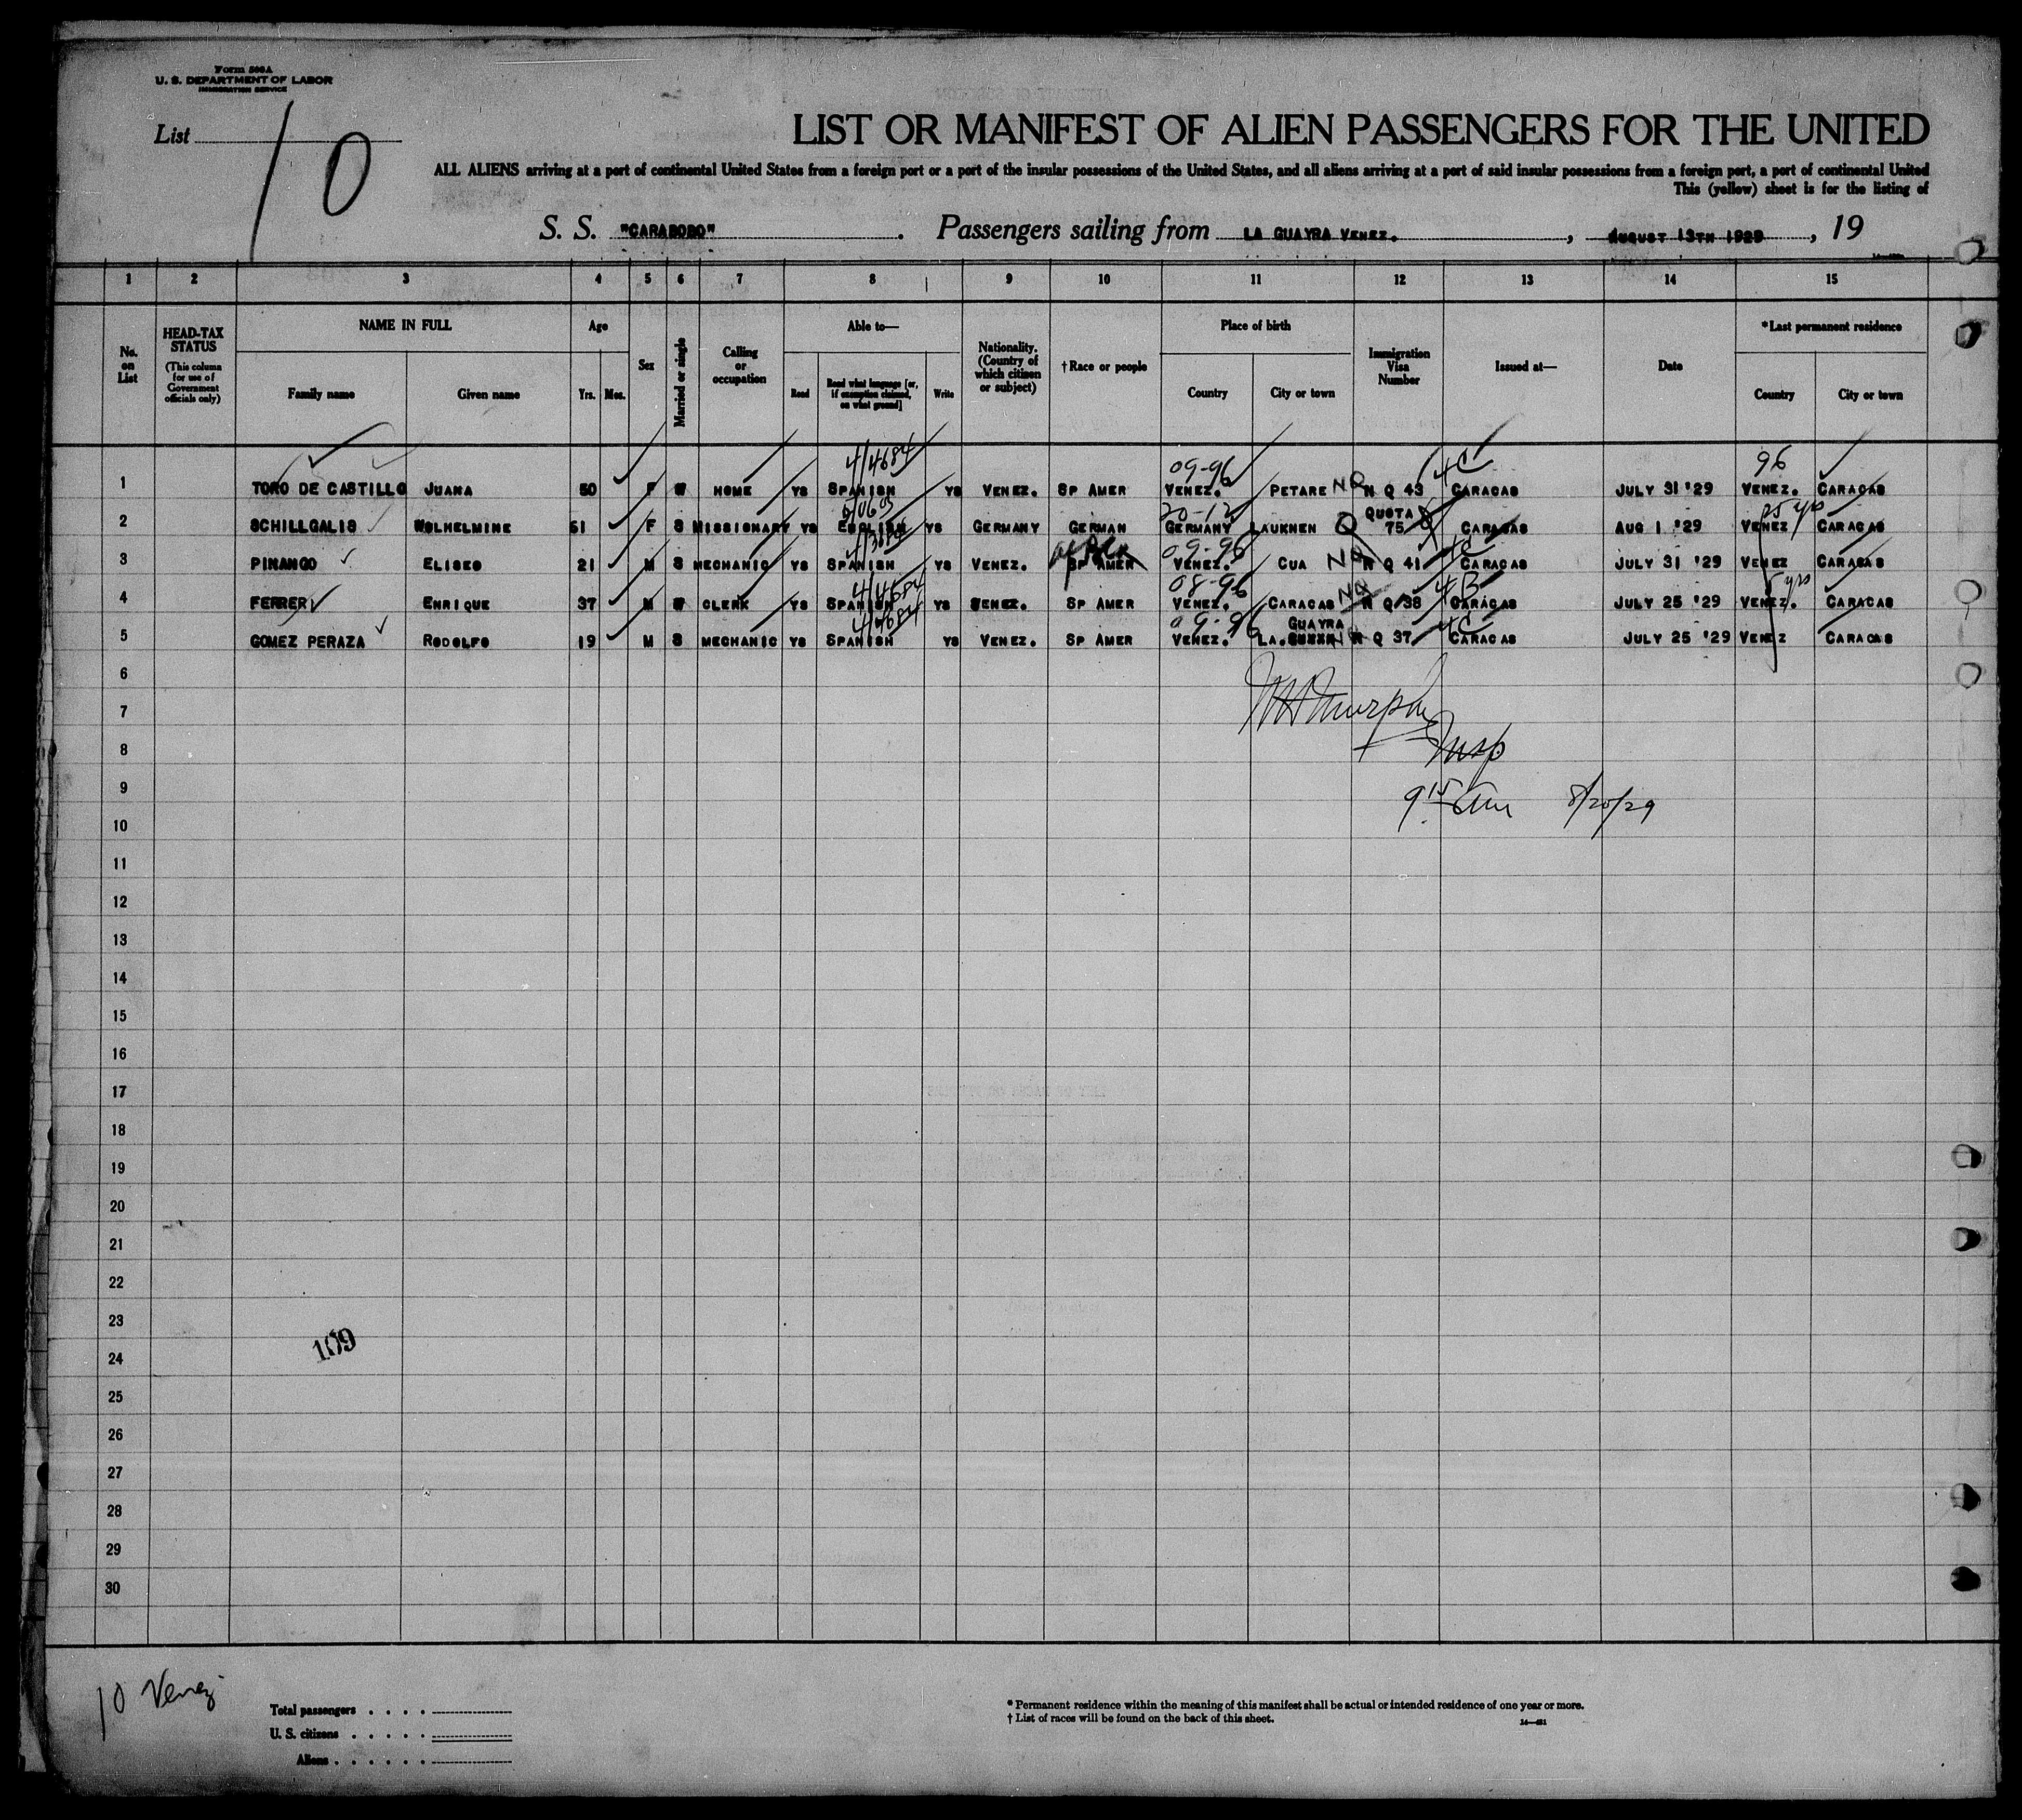 Form 500A
U. S. DEPARTMENT OF LABOR
IMMIGRATION SERVICE
List 10
LIST OR MANIFEST OF ALIEN PASSENGERS FOR THE UNITED
ALL ALIENS arriving at a port of continental United States from a foreign port or a part of the insular possessions of the United States, and all aliens arriving at a port of said insular possessions from a foreign port, a port of continental United
This (yellow) sheet is for the listing of
S. S. "CARABOBO". Passengers sailing from LA GUAYRA VENEZ., AUGUST 13TH 1929, 19
1 2 3 4 5 6 7 8 9 10 11 12 13 14 15
No. on List
HEAD-TAX STATUS
(This column for use of Government officials only)
NAME IN FULL
Family name Given name
Age
Yrs. Mos.
Sex
Married or single
Calling or occupation
Able to—
Read Read what language [or, if exemption claimed, on what ground] Write
Nationality. (Country of which citizen or subject)
†Race or people
Place of birth
Country City or town
Immigration Visa Number
Issued at—
Date
*Last permanent residence
Country City or town
4/4684 09-96 4C 96
1 TORO DE CASTILLO JUANA 50 F W HOME YS SPANISH YS VENEZ. SP AMER VENEZ. PETARE NQ N Q 43 CARACAS JULY 31 '29 VENEZ. CARACAS
20-12 QUOTA
2 SCHILLGALIS WOLHELMINE 51 F S MISSIONARY YS ENGLISH YS GERMANY GERMAN GERMANY LAUKNEN Q 75 CARACAS AUG 1 '29 VENEZ CARACAS
09-96 4C
3 PINANGO ELISEO 21 M S MECHANIC YS SPANISH YS VENEZ. SP AMER VENEZ. CUA NQ N Q 41 CARACAS JULY 31 '29 VENEZ CARACAS
4/4684 08-96 NQ 4B 5 yrs
4 FERRER ENRIQUE 37 M W CLERK YS SPANISH YS VENEZ. SP AMER VENEZ. CARACAS N Q 38 CARACAS JULY 25 '29 VENEZ. CARACAS
4/4684 09-96 GUAYRA 4C
5 GOMEZ PERAZA RODOLFO 19 M S MECHANIC YS SPANISH YS VENEZ. SP AMER VENEZ. LA. N Q 37 CARACAS JULY 25 '29 VENEZ CARACAS
6
7 Murphy
8 Insp
9 9 15 am 8/20/29
10
11
12
13
14
15
16
17
18
19
20
21
22
23
109
24
25
26
27
28
29
30
10 Venez
Total passengers
U. S. citizens
Aliens
* Permanent residence within the meaning of this manifest shall be actual or intended residence of one year or more.
† List of races will be found on the back of this sheet.